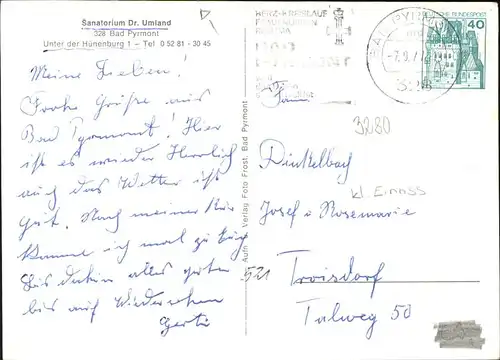 Sanatorium Dr. Umland
328 Bad Pyrmont
Unter der Hünenburg 1 – Tel 0 52 81 - 30 45
Meine Lieben!
Frohe Grüße aus
Bad Pyrmont! Hier
ist es wieder Herrlich
auch das Wetter ist
gut. Nach meiner Kur
komme ich mal zu Euch
Bis dahin alles guten
bis auf Wiedersehen
Gerti
Aufn. Verlag Foto Frost, Bad Pyrmont
HERZ-KREISLAUF
FRAUENLEIDEN
RHEUMA
BAD PYRMONT
DEUTSCHE BUNDESPOST
40
328
Fam.
3280
Dinkelbach
kl Einass
Josef u Rosemarie
521 Troisdorf
Talweg 50